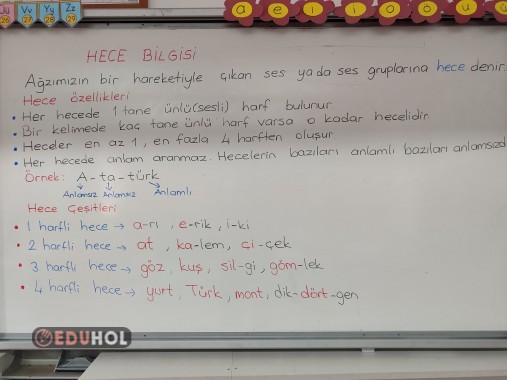 Uu Vv Yy Zz
26 27 28 29
a e ı i o ö u
HECE BİLGİSİ
Ağzımızın bir hareketiyle çıkan ses ya da ses gruplarına hece denir.
Hece özellikleri
• Her hecede 1 tane ünlü (sesli) harf bulunur
• Bir kelimede kaç tane ünlü harf varsa o kadar hecelidir.
• Heceler en az 1, en fazla 4 harften oluşur
• Her hecede anlam aranmaz. Hecelerin bazıları anlamlı bazıları anlamsızd
Örnek: A-ta-türk
Anlamsız Anlamsız Anlamlı
Hece Çeşitleri
• 1 harfli hece → a-rı, e-rik, i-ki
• 2 harfli hece → at, ka-lem, çi-çek
• 3 harfli hece → göz, kuş, sil-gi, göm-lek
• 4 harfli hece → yurt, Türk, mont, dik-dört-gen
EDUHOL